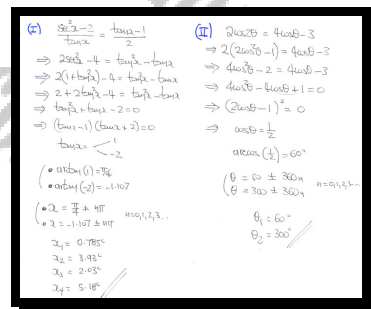 (I) (sec²x-2)/tanx = (tanx-1)/2
⇒ 2sec²x-4 = tan²x-tanx
⇒ 2(1+tan²x)-4 = tan²x-tanx
⇒ 2+2tan²x-4 = tan²x-tanx
⇒ tan²x+tanx-2=0
⇒ (tanx-1)(tanx+2)=0
tanx= < 1
-2
( • arctan(1)=π/4
• arctan(-2)=-1.107
( • x = π/4 ± nπ
• x = -1.107 ± nπ n=0,1,2,3...
x₁ = 0.785ᶜ
x₂ = 3.93ᶜ
x₃ = 2.03ᶜ
x₄ = 5.18ᶜ
(II) 2cos2θ = 4cosθ-3
⇒ 2(2cos²θ-1)=4cosθ-3
⇒ 4cos²θ-2 = 4cosθ-3
⇒ 4cos²θ-4cosθ+1=0
⇒ (2cosθ-1)² = 0
⇒ cosθ=1/2
arccos(1/2)=60°
( θ = 60 ± 360n
θ = 300 ± 360n n=0,1,2,3...
θ₁ = 60°
θ₂ = 300°